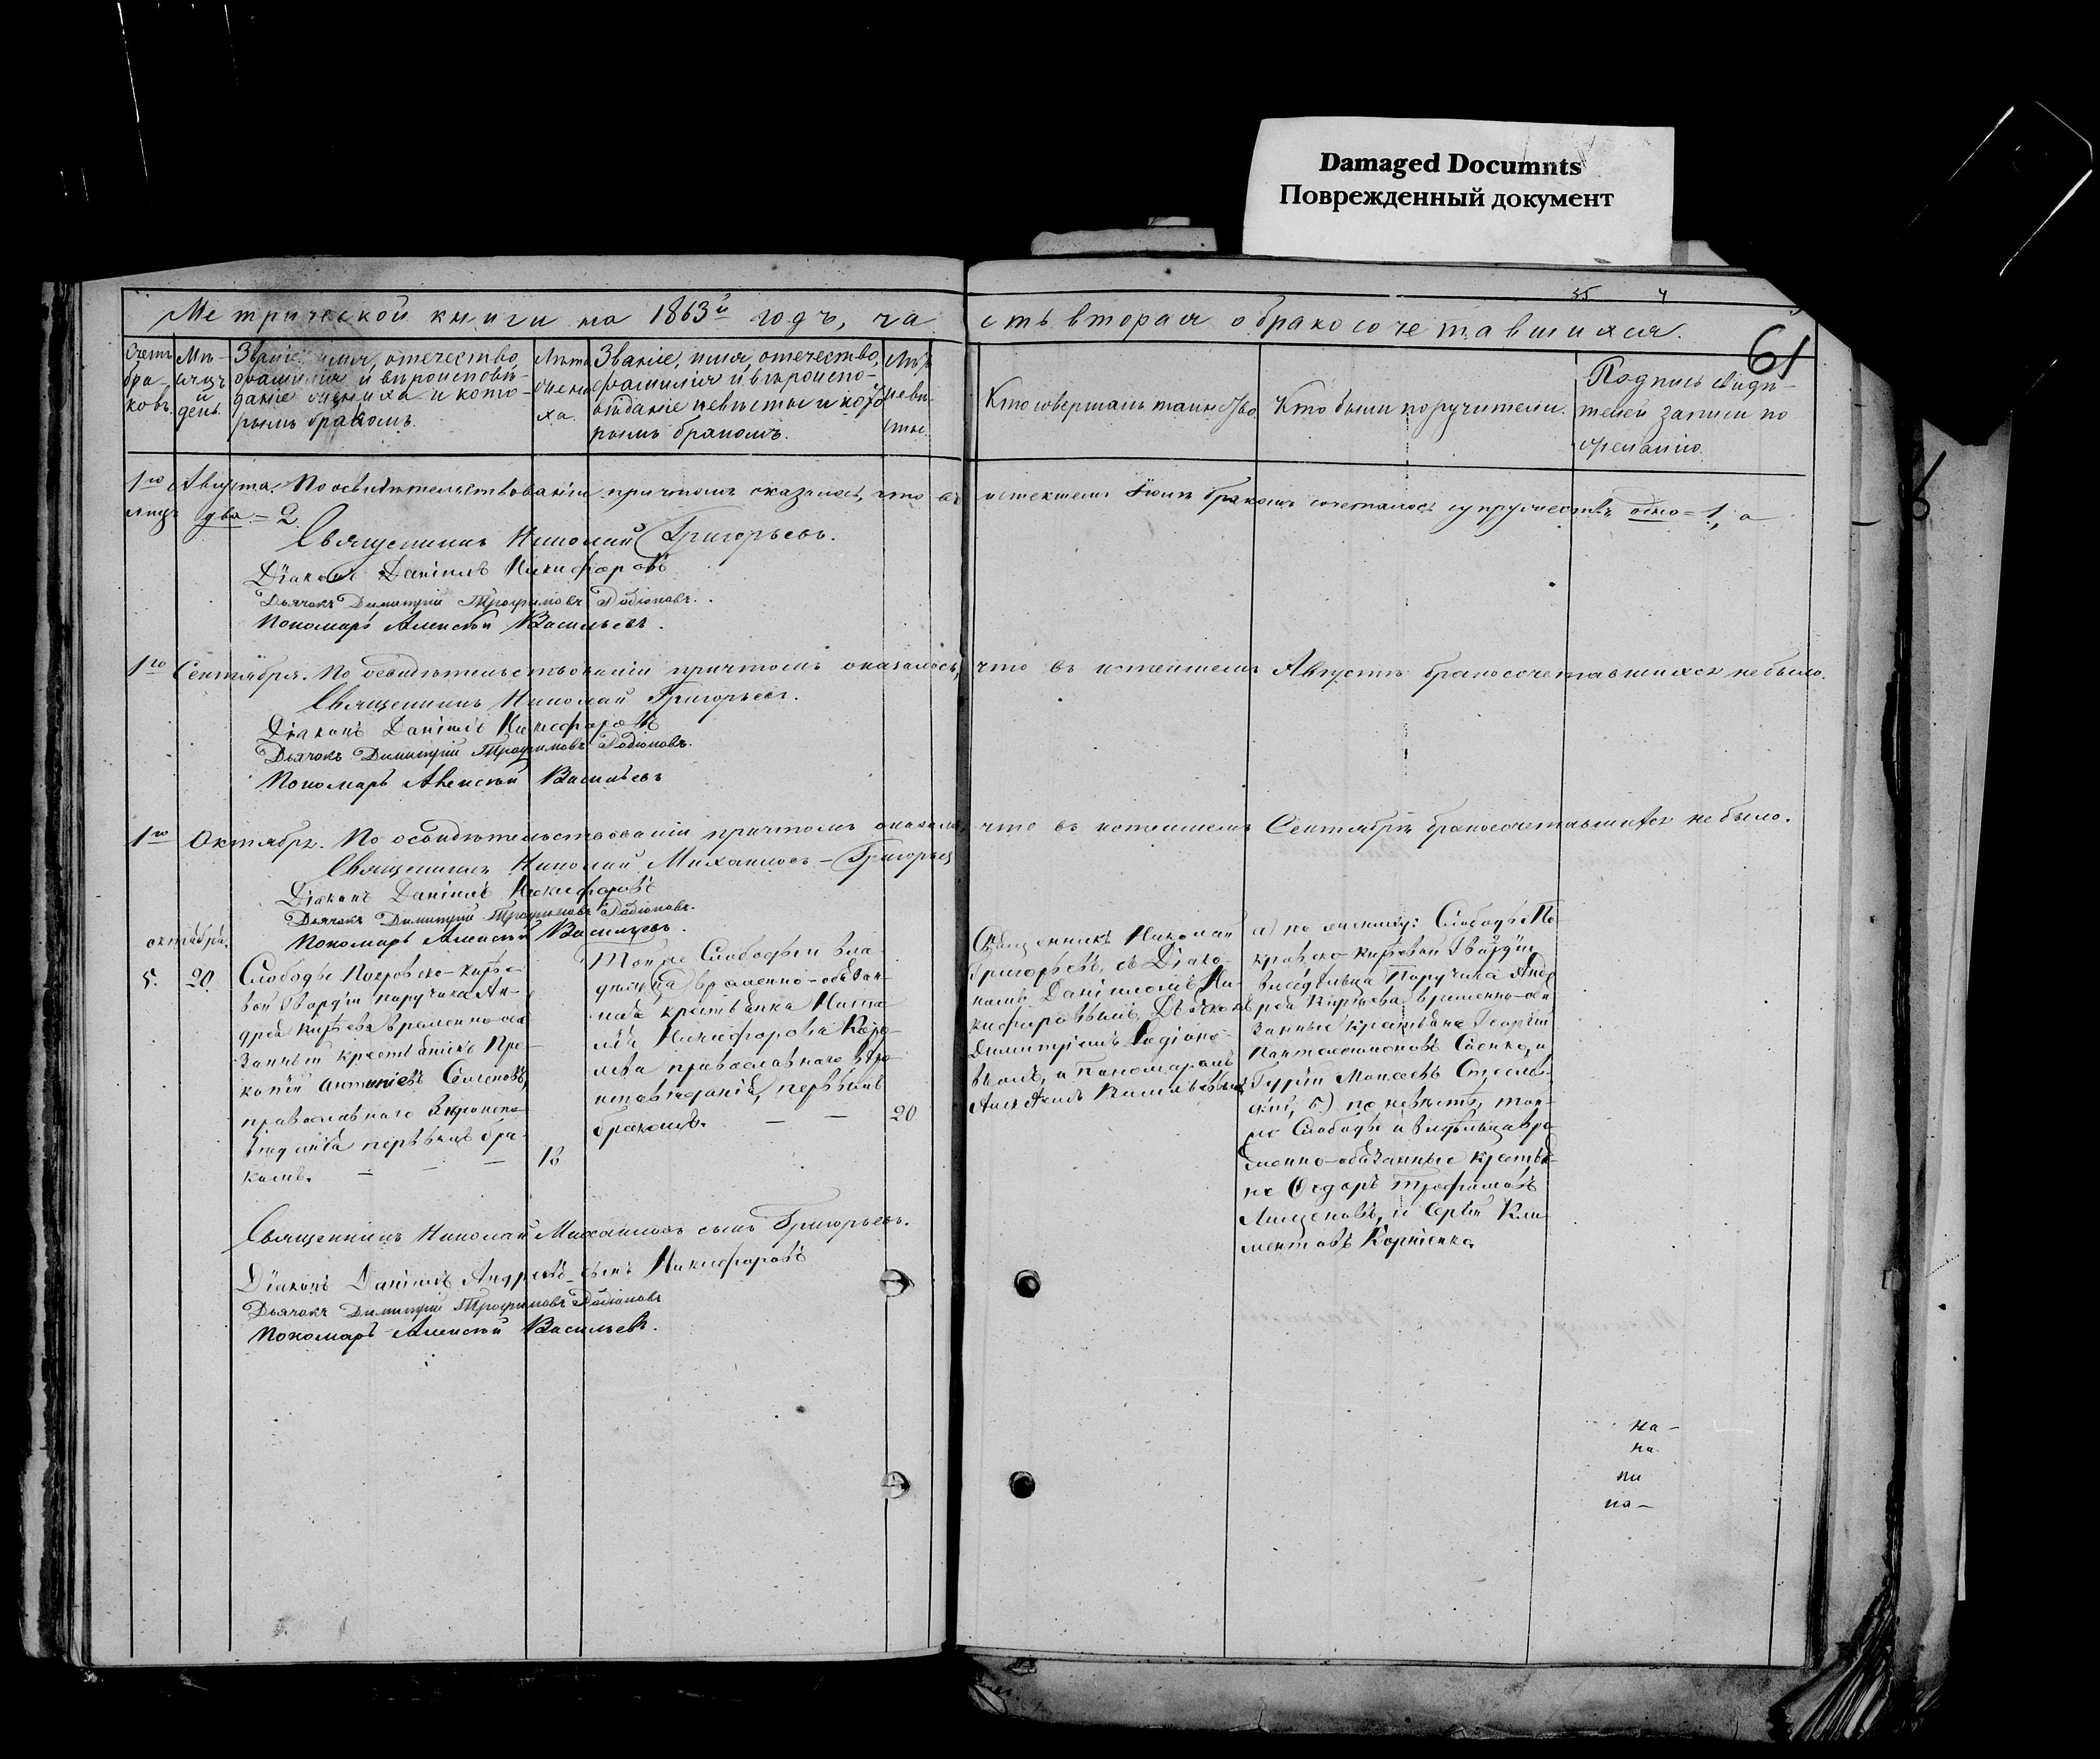 Damaged Documnts
Поврежденный документ
Метрической книги на 1863й годъ, часть вторая о бракосочетавшихся.
61
Счетъ бра-ковъ.
Мѣ-сяцъ и день.
Званіе, имя, отечество,
фамилія и вѣроисповѣ-
даніе жениха и кото-
рымъ бракомъ.
Лѣта
жени
ха.
Званіе, имя, отечество,
фамилія и вѣроиспо-
вѣданіе невѣсты и кото
рымъ бракомъ.
Лѣта
невѣ
сты.
Кто совершалъ таинство
Кто были поручители.
Подпись свидѣ-
телей записи по
желанію.
1го Августа. По освидѣтельствованіи причтомъ оказалось, что въ истекшемъ Іюлѣ бракомъ сочеталось супружествъ одно = 1, а
лицъ два = 2
Священникъ Николай Григорьевъ.
Діаконъ Даніилъ Никифоровъ
Дьячокъ Димитрій Трофимовъ Родіоновъ.
Пономарь Алексѣй Васильевъ.
1го Сентября. По освидѣтельствованіи причтомъ оказалось, что въ истекшемъ Августѣ бракосочетавшихся не было.
Священникъ Николай Григорьевъ.
Діаконъ Даніилъ Никифоровъ
Дьячокъ Димитрій Трофимовъ Родіоновъ.
Пономарь Алексѣй Васильевъ
1го Октября. По освидѣтельствованіи причтомъ оказалось, что въ истекшемъ Сентябрѣ бракосочетавшихся не было.
Священникъ Николай Михаиловъ - Григорьевъ
Діаконъ Даніилъ Никифоровъ
Дьячокъ Димитрій Трофимовъ Родіоновъ.
Пономарь Алексѣй Васильевъ.
октября.
5. 20.
Слободы Покровско-Кирѣе-
вой Гвардіи поручика Ан-
дрея Кирѣева временно-обя
занный крестьянинъ Про-
копій Антоніевъ Семеновъ,
православнаго вѣроиспо-
вѣданія первымъ бра-
комъ. — — —
18
Той же Слободы и вла-
дѣльца временно-обязан-
ная крестьянка Ната-
лія Никифорова Коро-
лева православнаго вѣро
исповѣданія, первымъ
бракомъ. — —
20
Священникъ Николай
Григорьевъ, съ Діако-
номъ Даніиломъ Ни-
кифоровымъ, Дьячкомъ
Димитріемъ Родіоно-
вымъ, и Пономаремъ
Алексѣемъ Васильевымъ
а) по жениху: Слободы По
кровско-Кирѣевой Гвардіи
владѣльца Поручика Анд
рея Кирѣева временно-обя
занные крестьяне Георгій
Пантелеимоновъ Саенко, и
Гурій Моисеевъ
б) по невѣстѣ, той-
же Слободы и владѣльца вре-
менно-обязанные крестья-
не Федоръ Трофимовъ
Лищеновъ, и Сергій Кли-
ментовъ Корніенко.
Священникъ Николай Михаиловъ сынъ Григорьевъ.
Діаконъ Даніилъ Андреевъ сынъ Никифоровъ
Дьячокъ Димитрій Трофимовъ Родіоновъ
Пономарь Алексѣй Васильевъ.